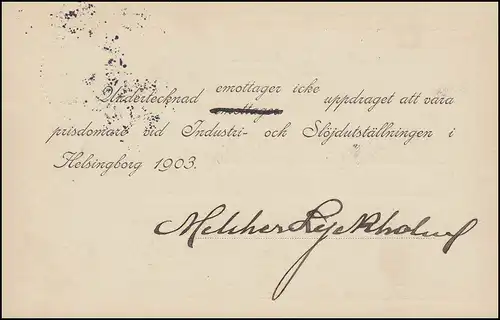 emottager icke
Undertecknad emottager uppdraget att vara
prisdomare vid Industri- och Slöjdutställningen i
Helsingborg 1903.
Melcher Lyckholm